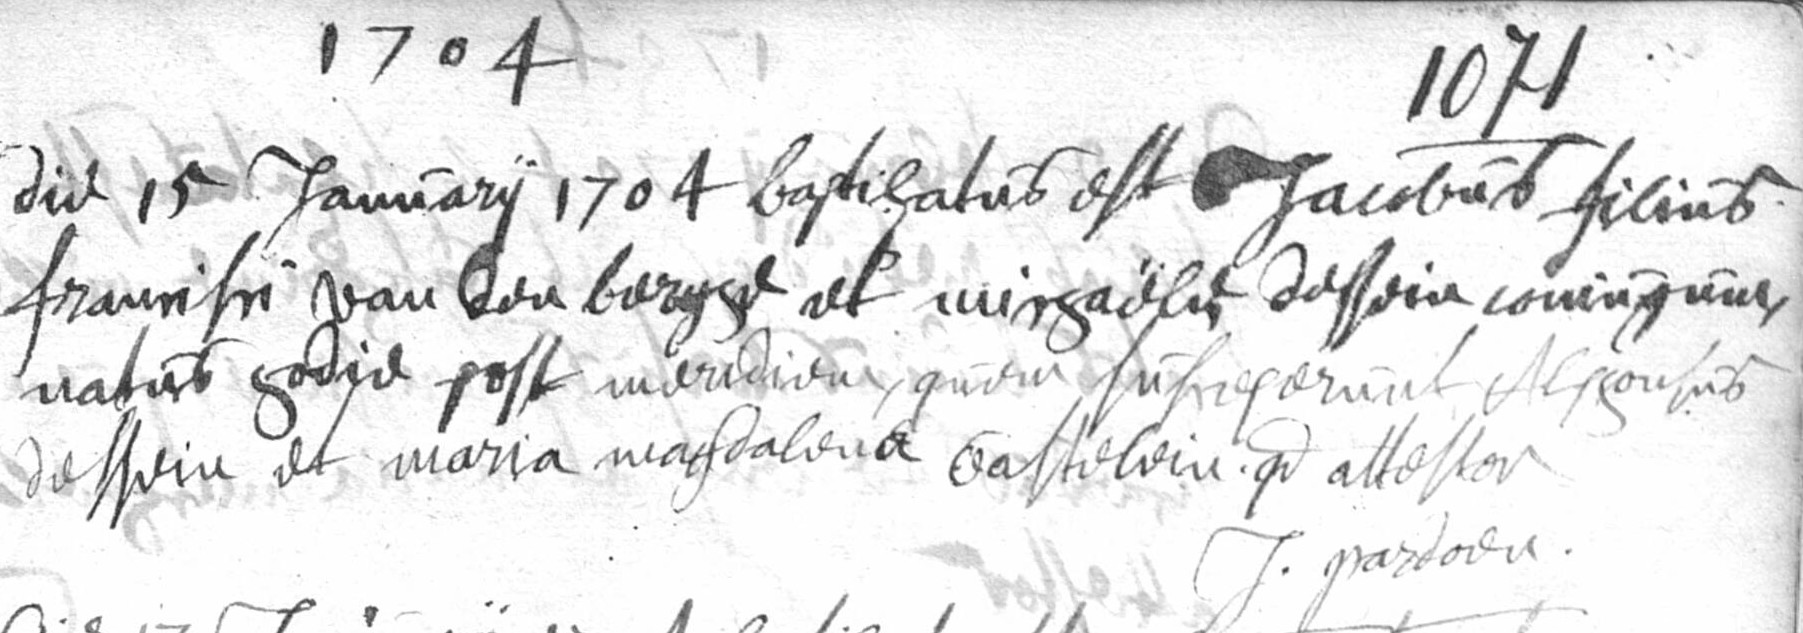 1704
1071
die 15 Januarij 1704 baptisatus est Jacobus filius
francisci van den berghe et michaëlis dessein coniugum,
natus hodie post meridiem, quem susceperunt Alphonsus
dessein et maria magdalena Castelein. qd attestor
J. pardoen.